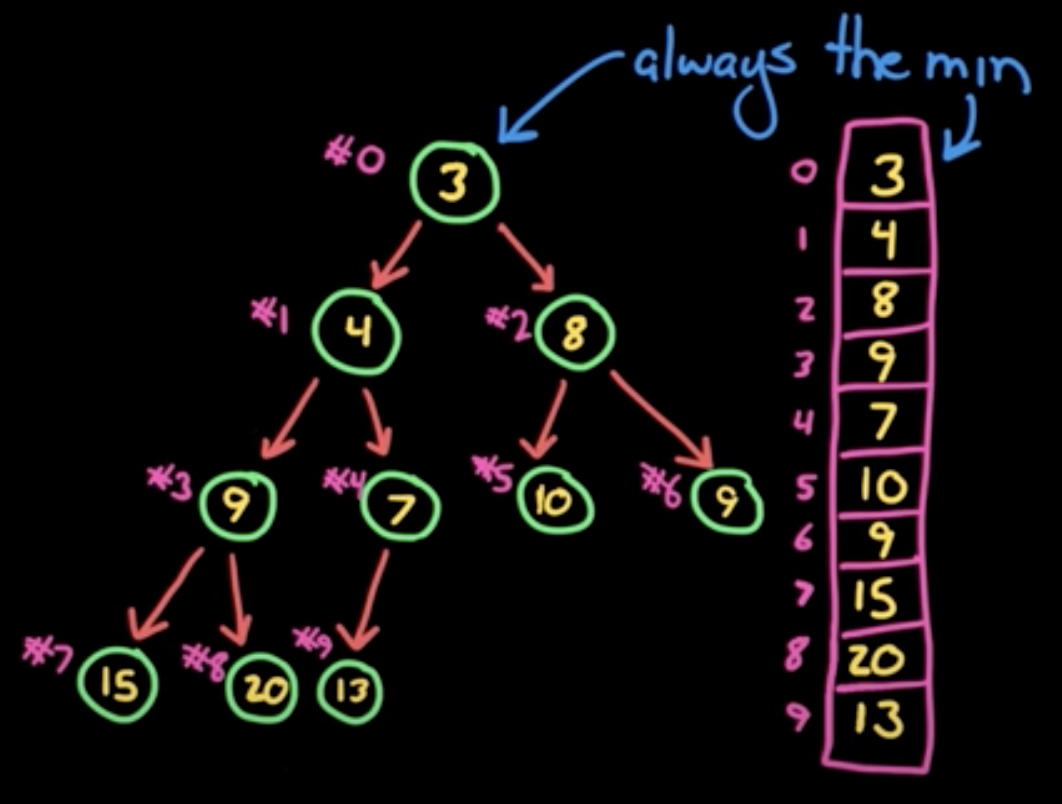 always the min
#0 3
#1 4 #2 8
#3 9 #4 7 #5 10 #6 9
#7 15 #8 20 #9 13
0 3
1 4
2 8
3 9
4 7
5 10
6 9
7 15
8 20
9 13